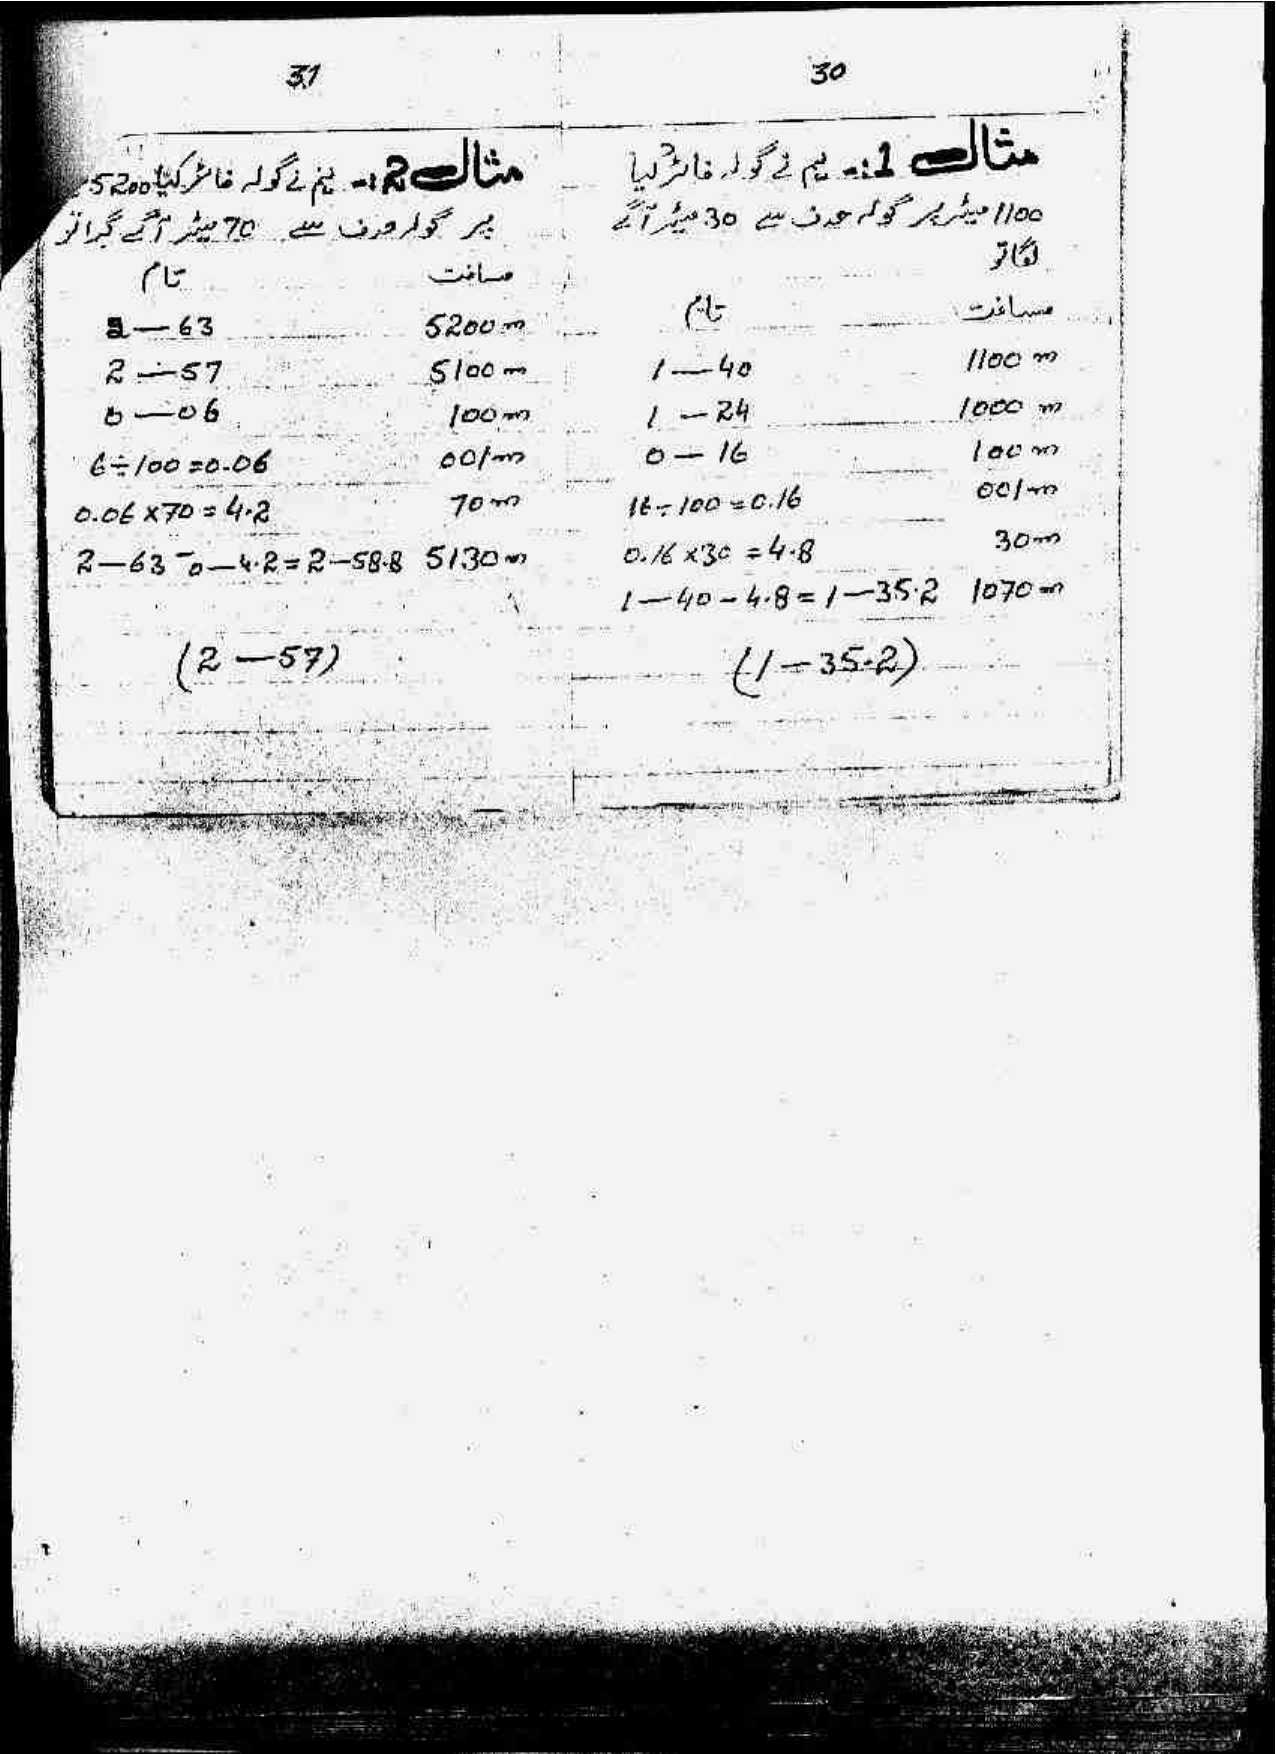 30
مثال 1:- ہم نے گولہ فائر کیا
1100 میٹر پر گولہ ہدف سے 30 میٹر آگے
لگا تو
مسافت تام
1100 m 1—40
1000 m 1—24
100 m 0—16
001 m 16÷100=0.16
30 m 0.16×30=4.8
1070 m 1—40-4.8=1—35.2
(1—35.2)
31
مثال 2:- ہم نے گولہ فائر کیا 5200
پر گولہ ہدف سے 70 میٹر آگے گرا تو
مسافت تام
5200 m 2—63
5100 m 2—57
100 m 0—06
001 m 6÷100=0.06
70 m 0.06×70=4.2
5130 m 2—63-0—4.2=2—58.8
(2—57)